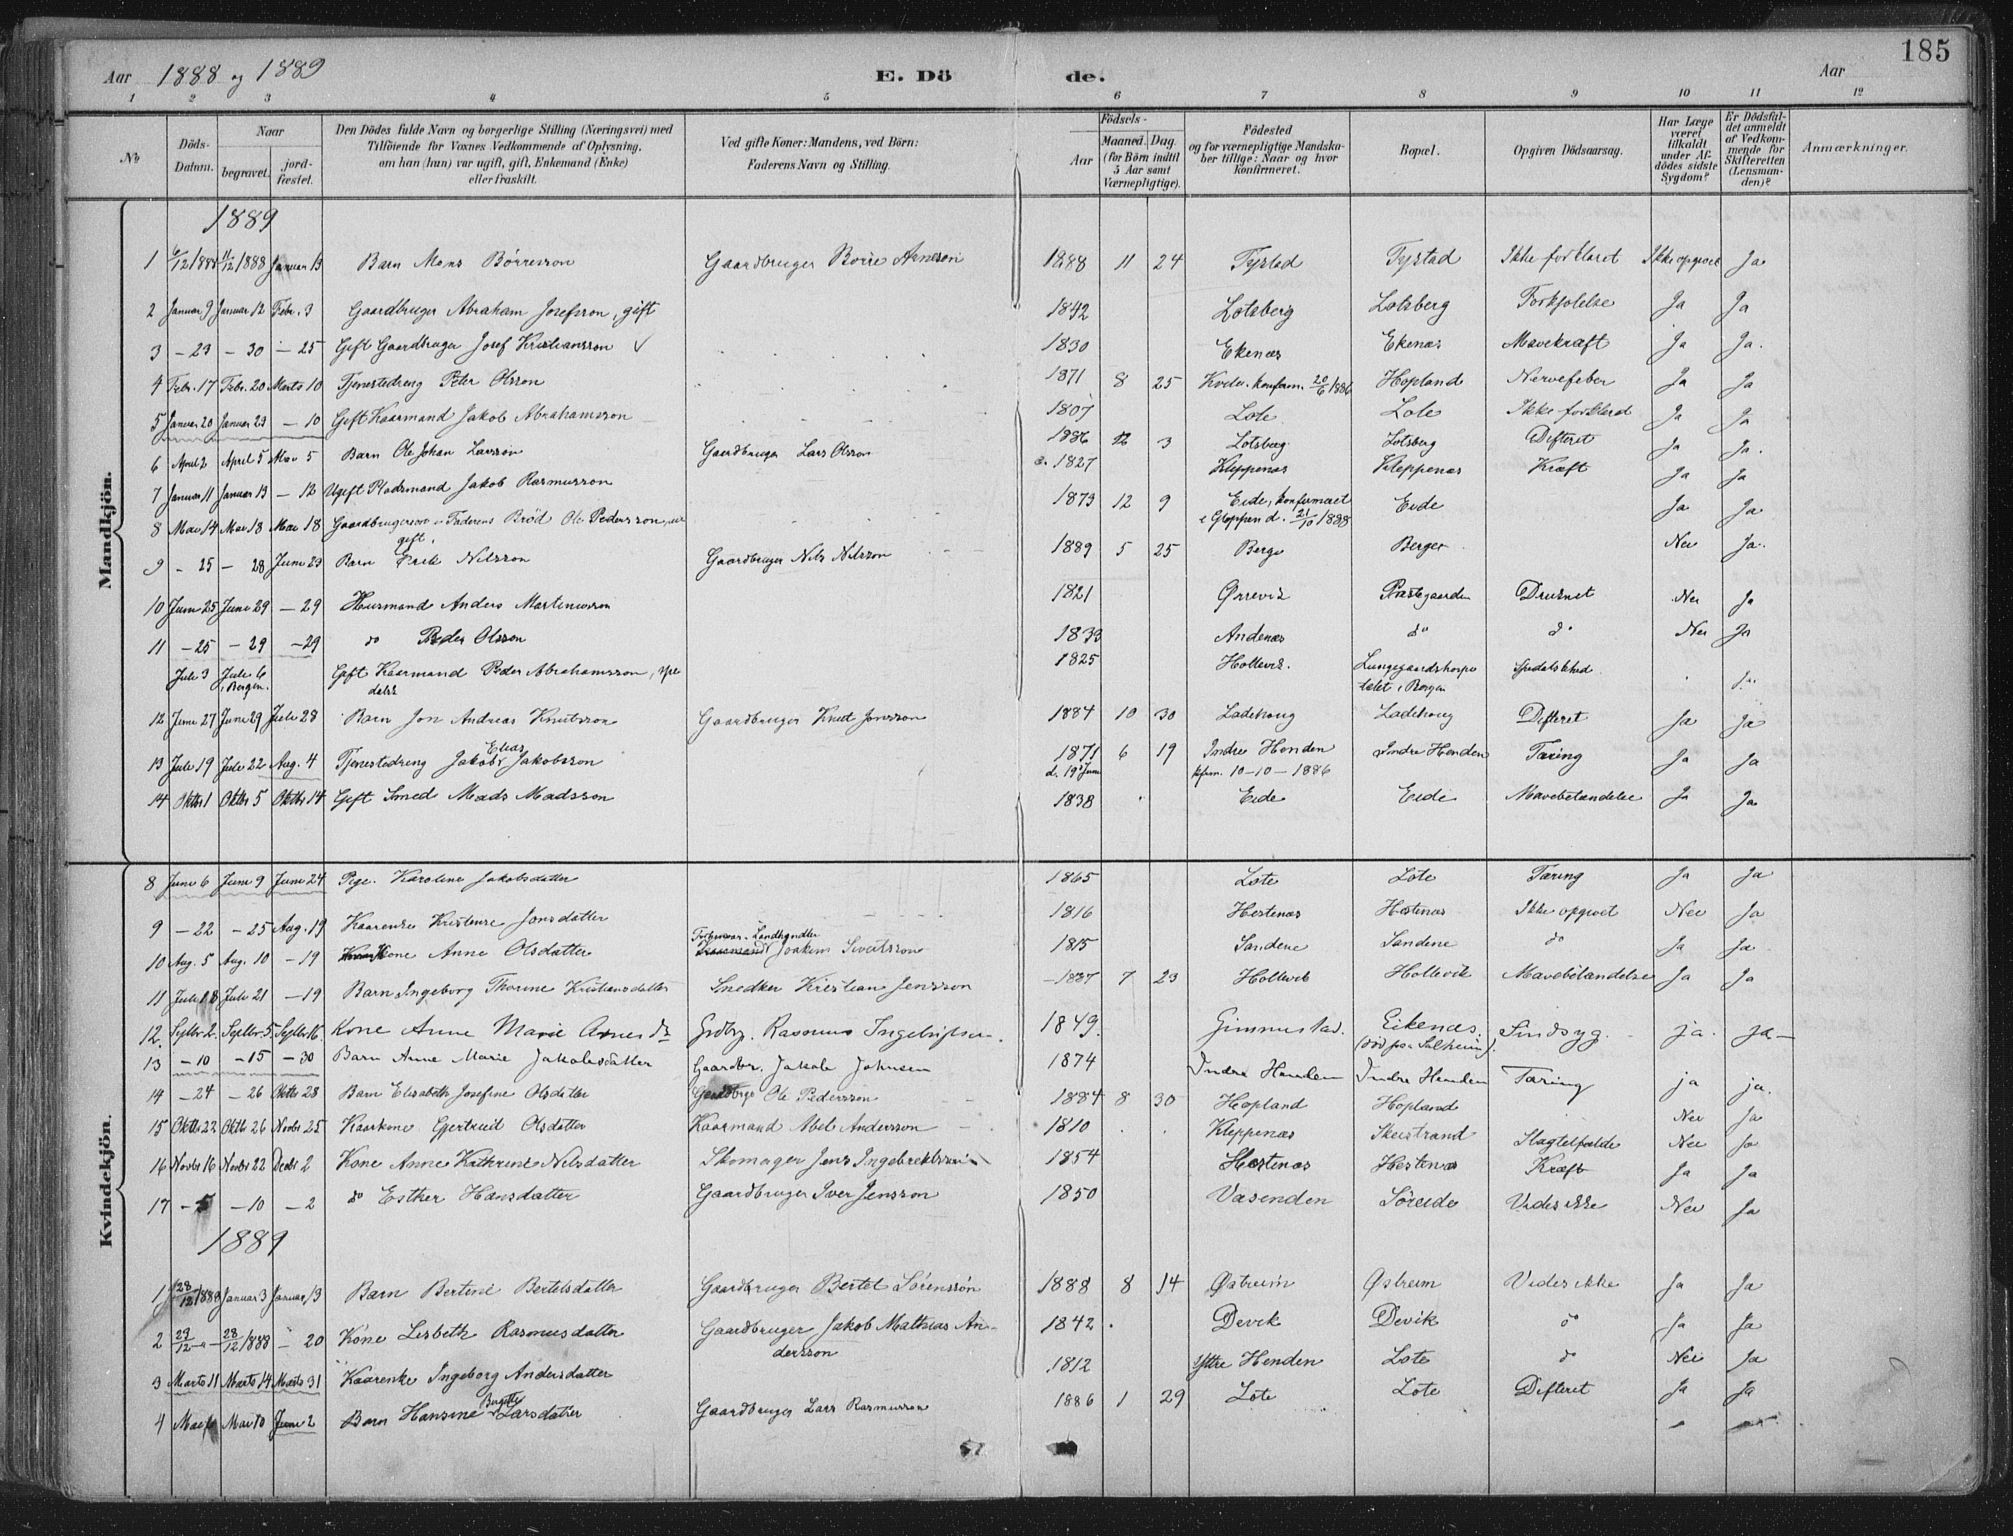 185
Aar 1888 og 1889 E. Döde. Aar
1 2 3 4 5 6 7 8 9 10 11 12
No
Döds-Datum.
Naar begravet. jordfæstet.
Den Dödes fulde Navn og borgerlige Stilling (Næringsvei) med Tilföiende for Voxnes Vedkommende af Oplysning, om han (hun) var ugift, gift, Enkemand (Enke) eller fraskilt.
Ved gifte Koner: Mandens, ved Börn: Faderens Navn og Stilling.
Födsels- Aar Maaned. Dag. (for Börn indtil 5 Aar samt Værnepligtige).
Födested og for værnepligtige Mandskaber tillige: Naar og hvor konfirmeret.
Bopæl.
Opgiven Dödsaarsag.
Har Læge været tilkaldt under Afdödes sidste Sygdom?
Er Dödsfaldet anmeldt af Vedkommende for Skifteretten (Lensmanden)?
Anmærkninger.
Mandkjön.
1889
1 6/12 1888 11/12 1888 Januar 13 Barn Mons Börresson Gaardbruger Börre Arneson 1888 11 24 Tystad Tystad Ikke forklaret Ikke opgivet Ja
2 Januar 9 Januar 12 Febr. 3 Gaardbruger Abraham Josefsson, gift 1842 Lotsberg Lotsberg Forkjølelse Ja Ja
3 - 23 - 30 - 25 Gift Gaardbruger Josef Kristiansson 1830 Ekenæs Ekenæs Mavekræft Ja Ja.
4 Febr. 17 Febr. 20 Marts 10 Tjenestedreng Peter Olsson 1871 8 25 konfirm. 20/6 1886 Hopland Nervefeber Ja Ja
5 Januar 20 Januar 23 - 10 Gift Kaarmand Jakob Abrahamsson 1807 Lote Lote Ikke forklaret Ja Ja
6 April 2 April 5 Mai 5 Barn Ole Johan Larsson Gaardbruger Lars Olsson 1886 12 3 Lotsberg Lotsberg Difterit Ja Ja.
7 Januar 11 Januar 13 - 12 Ugift Pladsmand Jakob Rasmusson 1827 Kleppenæs Kleppenæs Kræft Ja Ja
8 Mai 14 Mai 18 Mai 18 Gaardbrugersøn i Faderens Brød Ole Pedersson, ugift. 1873 12 9 Eide, konfirmeret i Gloppen d. 21/10 1888 Eide Ja Ja
9 - 25 - 28 Juni 23 Barn Erik Nilsson Gaardbruger Nils Nilsson 1889 5 25 Berge Berge Nei Ja.
10 Juni 25 Juni 29 - 29 Husmand Anders Martinusson 1821 Ørrevik Præstegaarden Druknet Nei Ja
11 - 25 - 29 - 29 do Peder Olsson 1833 Andenæs do do Nei Ja
Juli 3 Juli 6 i Bergen. Gift Kaarmand Peder Abrahamsson, spedalsk 1825 Hollevik. Lungegaardshospitalet i Bergen Spedalskhed Ja
12 Juni 27 Juni 29 Juli 28 Barn Jon Andreas Knutsson Gaardbruger Knut Jonsson 1884 10 30 Ladehoug Ladehoug Difterit Ja Ja
13 Juli 19 Juli 22 Aug. 4 Tjenestedreng Jakob Elias Jakobsson 1871 6 19 d. 19 Juni Indre Henden kfirm. 10-10-1886 Indre Henden Tæring Ja Ja
14 Oktbr 1 Oktbr 5 Oktbr 14 Gift Smed Mads Madsson 1838 Eide Eide Mavebetændelse Ja Ja
Kvindekjön.
8 Juni 6 Juni 9 Juni 24 Pige. Karoline Jakobsdatter 1865 Lote Lote Tæring Ja Ja
9 - 22 - 25 Aug. 19 Kaarenke Kristense Jonsdatter 1816 Hestenæs Hestenæs Ikke opgivet Nei Ja
10 Aug. 5 Aug. 10 - 19 Kone Anne Olsdatter Forhenvær. Landhandler Joakim Sivertsson 1815 Sandene Sandene do Ja Ja
11 Juli 18 Juli 21 - 19 Barn Ingeborg Thorine Kristiansdatter Snedker Kristian Jensson 1887 7 23 Hollevik Hollevik Mavebetændelse Ja Ja
12. Septbr 2. Septbr 5. Septbr 16. Kone Anne Marie Arnesdr Grdbrg. Rasmus Ingebrigtsen 1849. Gimmestad. Eikenæs. (død paa Solheim). Sindsyg. ja. ja
13 - 10 - 15 - 30 Barn Anne Marie Jakobsdatter Gaardbr. Jakob Johnsen 1874 Indre Henden Indre Henden Tæring ja ja.
14 - 24 - 26 Oktbr 28 Barn Elisabeth Josefine Olsdatter Gaardbrg. Ole Pedersson 1884 8 30 Hopland Hopland Nei Ja
15 Oktbr 22 Oktbr 26 Novbr 25 Kaarkone Gjertrud Olsdatter Kaarmand Abel Andersson 1810 Kleppenæs Skeistrand Slagtilfælde Nei Ja
16 Novbr 16 Novbr 22 Decbr 2 Kone Anne Kathrine Nilsdatter Skomager Jens Ingebrektsson 1854 Hestenæs Hestenæs Kræft Ja Ja
17 - 5 - 10 - 2 do Esther Hansdatter Gaardbruger Iver Jensson 1850 Vasenden Söreide Vides ikke Nei Ja
1889
1 28/12 1888 Januar 3 Januar 13 Barn Bertine Bertelsdatter Gaardbruger Bertel Sörenssön 1888 8 14 Østreim Østreim Vides ikke Ja Ja
2 23/12 28/12 1888 - 20 Kone Lisbeth Rasmusdatter Gaardbruger Jakob Mathias Andersson 1842 Devik Devik do Ja Ja
3 Marts 11 Marts 14 Marts 31 Kaarenke Ingeborg Andersdatter 1812 Yttre Henden Lote do Nei Ja
4 Mai Mai 10 Juni 2 Barn Hansine Birgitte Larsdatter Gaardbruger Lars Rasmusson 1886 1 29 Lote Lote Difterit Ja Ja